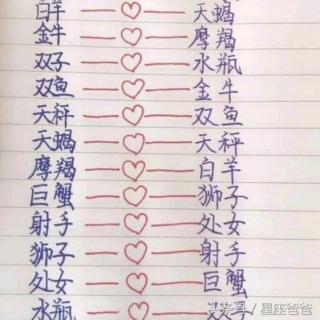 白羊 天蝎
金牛 摩羯
双子 水瓶
双鱼 金牛
天秤 双鱼
天蝎 天秤
摩羯 白羊
巨蟹 狮子
射手 处女
狮子 射手
处女 巨蟹
水瓶
头条号 / 星座爸爸